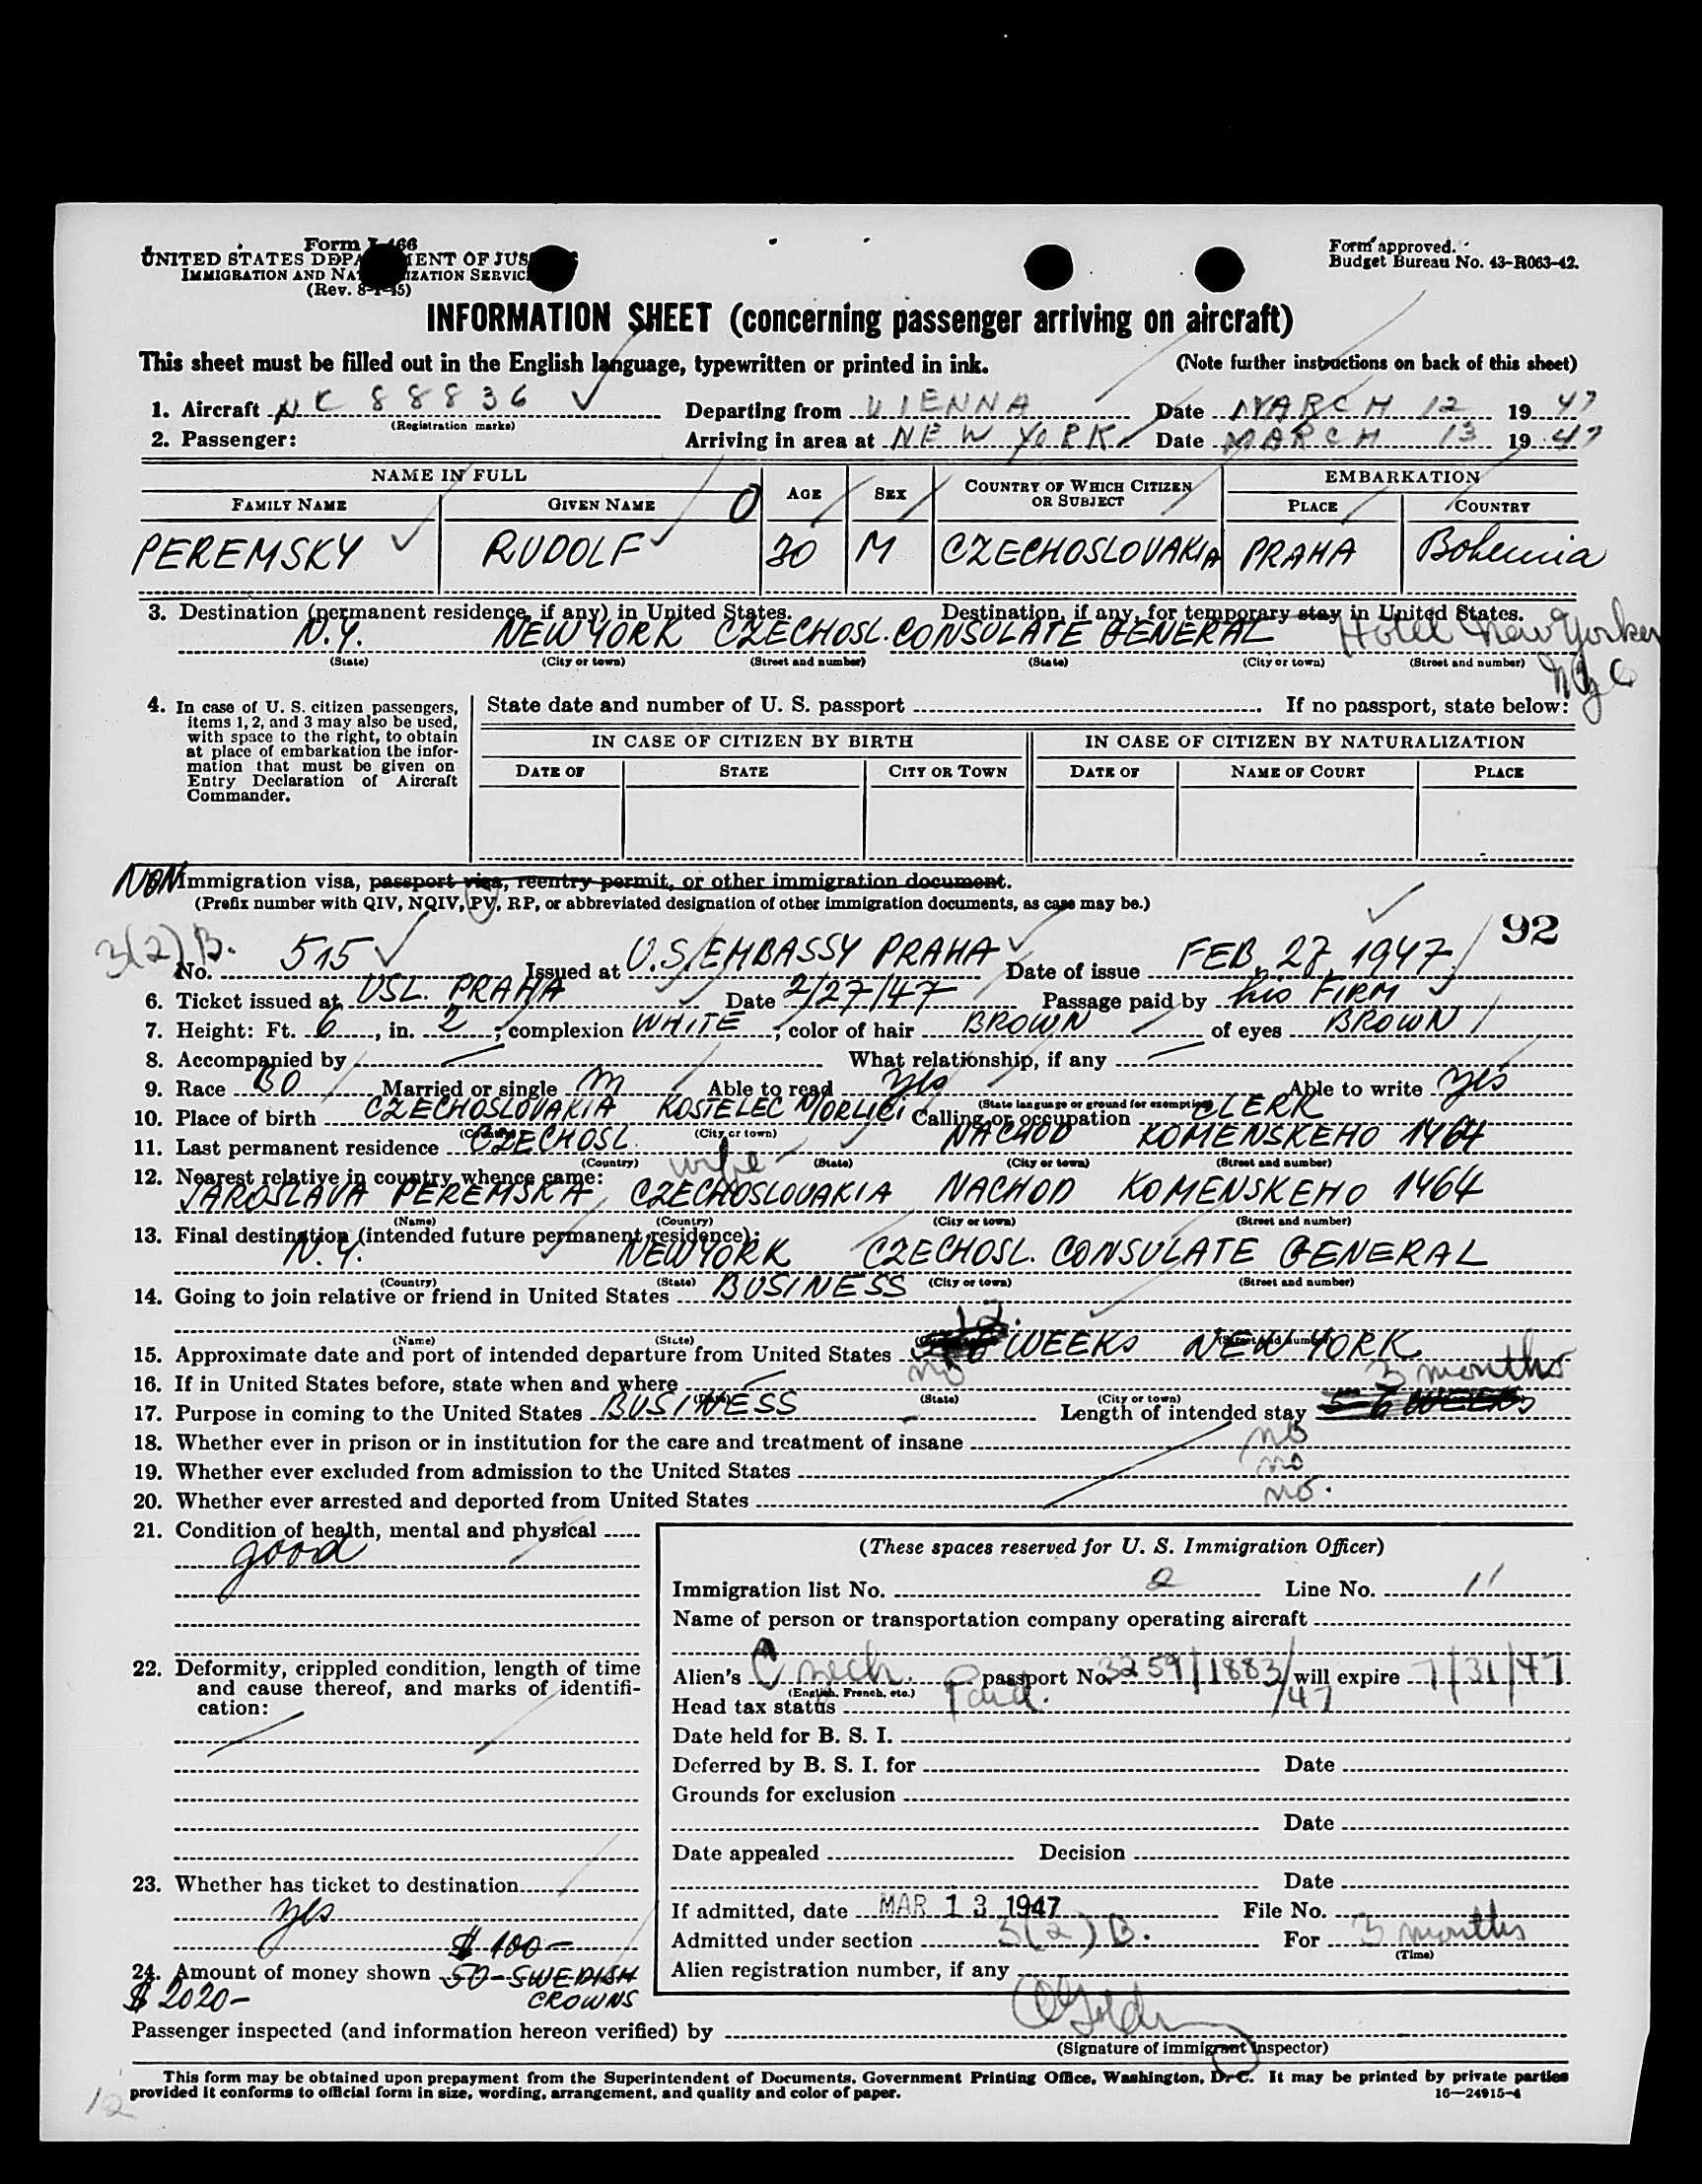 Form I-466
UNITED STATES DEPARTMENT OF JUSTICE
IMMIGRATION AND NATURALIZATION SERVICE
(Rev. 8-1-45)
Form approved.
Budget Bureau No. 43-R063-42.
INFORMATION SHEET (concerning passenger arriving on aircraft)
This sheet must be filled out in the English language, typewritten or printed in ink. (Note further instructions on back of this sheet)
1. Aircraft NC 88836 Departing from VIENNA Date MARCH 12 1947
(Registration marks)
2. Passenger: Arriving in area at NEW YORK Date MARCH 13 1947
NAME IN FULL AGE SEX COUNTRY OF WHICH CITIZEN OR SUBJECT EMBARKATION
FAMILY NAME GIVEN NAME PLACE COUNTRY
PEREMSKY RUDOLF 30 M CZECHOSLOVAKIA PRAHA Bohemia
3. Destination (permanent residence, if any) in United States. Destination, if any, for temporary stay in United States.
N.Y. NEW YORK CZECHOSL. CONSULATE GENERAL Hotel New Yorker
(State) (City or town) (Street and number) (State) (City or town) (Street and number)
NYC
4. In case of U. S. citizen passengers, items 1, 2, and 3 may also be used, with space to the right, to obtain at place of embarkation the information that must be given on Entry Declaration of Aircraft Commander.
State date and number of U. S. passport If no passport, state below:
IN CASE OF CITIZEN BY BIRTH IN CASE OF CITIZEN BY NATURALIZATION
DATE OF STATE CITY OR TOWN DATE OF NAME OF COURT PLACE
NON Immigration visa, passport visa, reentry permit, or other immigration document.
(Prefix number with QIV, NQIV, PV, RP, or abbreviated designation of other immigration documents, as case may be.)
92
3(2)B.
No. 515 Issued at U.S. EMBASSY PRAHA Date of issue FEB. 27, 1947
6. Ticket issued at USL. PRAHA Date 2/27/47 Passage paid by his FIRM
7. Height: Ft. 6, in. 2; complexion WHITE; color of hair BROWN of eyes BROWN
8. Accompanied by What relationship, if any
9. Race BO Married or single M Able to read yes Able to write yes
(State language or ground for exemption)
10. Place of birth CZECHOSLOVAKIA KOSTELEC N/ORLICI Calling or occupation CLERK
(Country) (City or town)
11. Last permanent residence CZECHOSL. NACHOD KOMENSKEHO 1464
(Country) (State) (City or town) (Street and number)
12. Nearest relative in country whence came: wife
JAROSLAVA PEREMSKA CZECHOSLOVAKIA NACHOD KOMENSKEHO 1464
(Name) (Country) (City or town) (Street and number)
13. Final destination (intended future permanent residence):
N.Y. NEW YORK CZECHOSL. CONSULATE GENERAL
(Country) (State) (City or town) (Street and number)
14. Going to join relative or friend in United States BUSINESS
(Name) (State) (City or town) (Street and number)
15. Approximate date and port of intended departure from United States 12. WEEKS NEW YORK
16. If in United States before, state when and where no
(Date) (State) (City or town)
3 months
17. Purpose in coming to the United States BUSINESS Length of intended stay 5-6 WEEKS
18. Whether ever in prison or in institution for the care and treatment of insane no
19. Whether ever excluded from admission to the United States no
20. Whether ever arrested and deported from United States no.
21. Condition of health, mental and physical
good
(These spaces reserved for U. S. Immigration Officer)
Immigration list No. 2 Line No. 11
Name of person or transportation company operating aircraft
22. Deformity, crippled condition, length of time and cause thereof, and marks of identification:
Alien's Czech. passport No. 3259/1883/47 will expire 7/31/47
(English, French, etc.)
Head tax status Paid.
Date held for B. S. I.
Deferred by B. S. I. for Date
Grounds for exclusion
Date
Date appealed Decision
Date
23. Whether has ticket to destination
yes
If admitted, date MAR 13 1947 File No.
Admitted under section 3(2)B. For 3 months
(Time)
Alien registration number, if any
$ 100-
24. Amount of money shown 50- SWEDISH
$ 2020- CROWNS
Passenger inspected (and information hereon verified) by
(Signature of immigrant inspector)
This form may be obtained upon prepayment from the Superintendent of Documents, Government Printing Office, Washington, D. C. It may be printed by private parties
provided it conforms to official form in size, wording, arrangement, and quality and color of paper. 16—24915-4
12